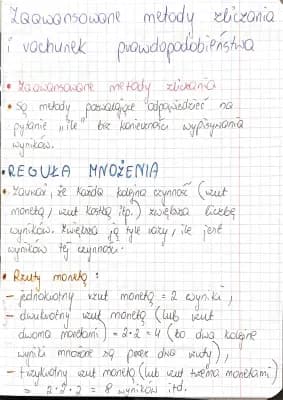 Zaawansowane metody zliczania
i rachunek prawdopodobieństwa
• Zaawansowane metody zliczania
• Są metody pozwalające odpowiedzieć na
pytanie „ile" bez konieczności wypisywania
wyników.
• REGUŁA MNOŻENIA
• Zauważ, że każda kolejna czynność (rzut
monetą, rzut kostką itp.) zwiększa liczbę
wyników. Zwiększa ją tyle razy, ile jest
wyników tej czynności.
• Rzuty monetą:
– jednokrotny rzut monetą = 2 wyniki,
– dwukrotny rzut monetą (lub rzut
dwoma monetami) = 2·2 = 4 (bo dwa kolejne
wyniki mnożone są przez dwa rzuty),
– trzykrotny rzut monetą (lub rzut trzema monetami)
= 2·2·2 = 8 wyników itd.